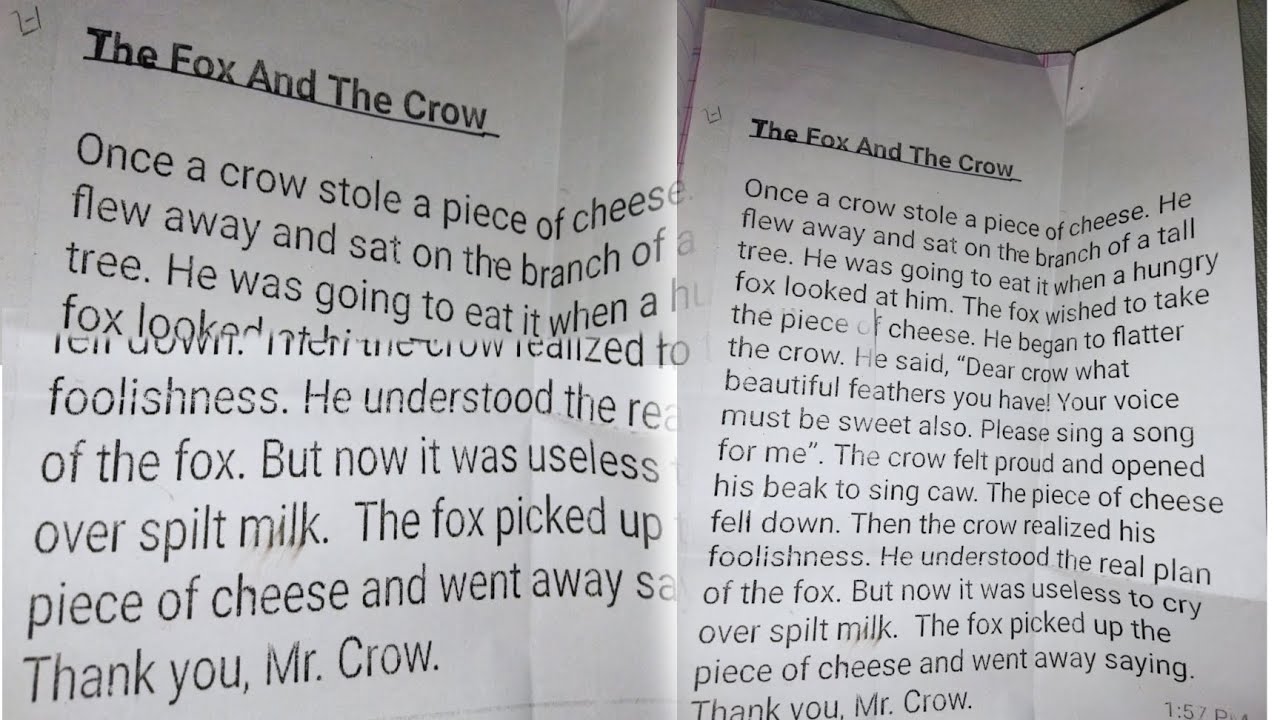 The Fox And The Crow
Once a crow stole a piece of cheese.
flew away and sat on the branch of a
tree. He was going to eat it when a
fox looked
fell down. Then the crow realized to
foolishness. He understood the rea
of the fox. But now it was useless
over spilt milk. The fox picked up
piece of cheese and went away sa
Thank you, Mr. Crow.
The Fox And The Crow
Once a crow stole a piece of cheese. He
flew away and sat on the branch of a tall
tree. He was going to eat it when a hungry
fox looked at him. The fox wished to take
the piece of cheese. He began to flatter
the crow. He said, “Dear crow what
beautiful feathers you have! Your voice
must be sweet also. Please sing a song
for me”. The crow felt proud and opened
his beak to sing caw. The piece of cheese
fell down. Then the crow realized his
foolishness. He understood the real plan
of the fox. But now it was useless to cry
over spilt milk. The fox picked up the
piece of cheese and went away saying.
Thank you, Mr. Crow.
1:57 PM